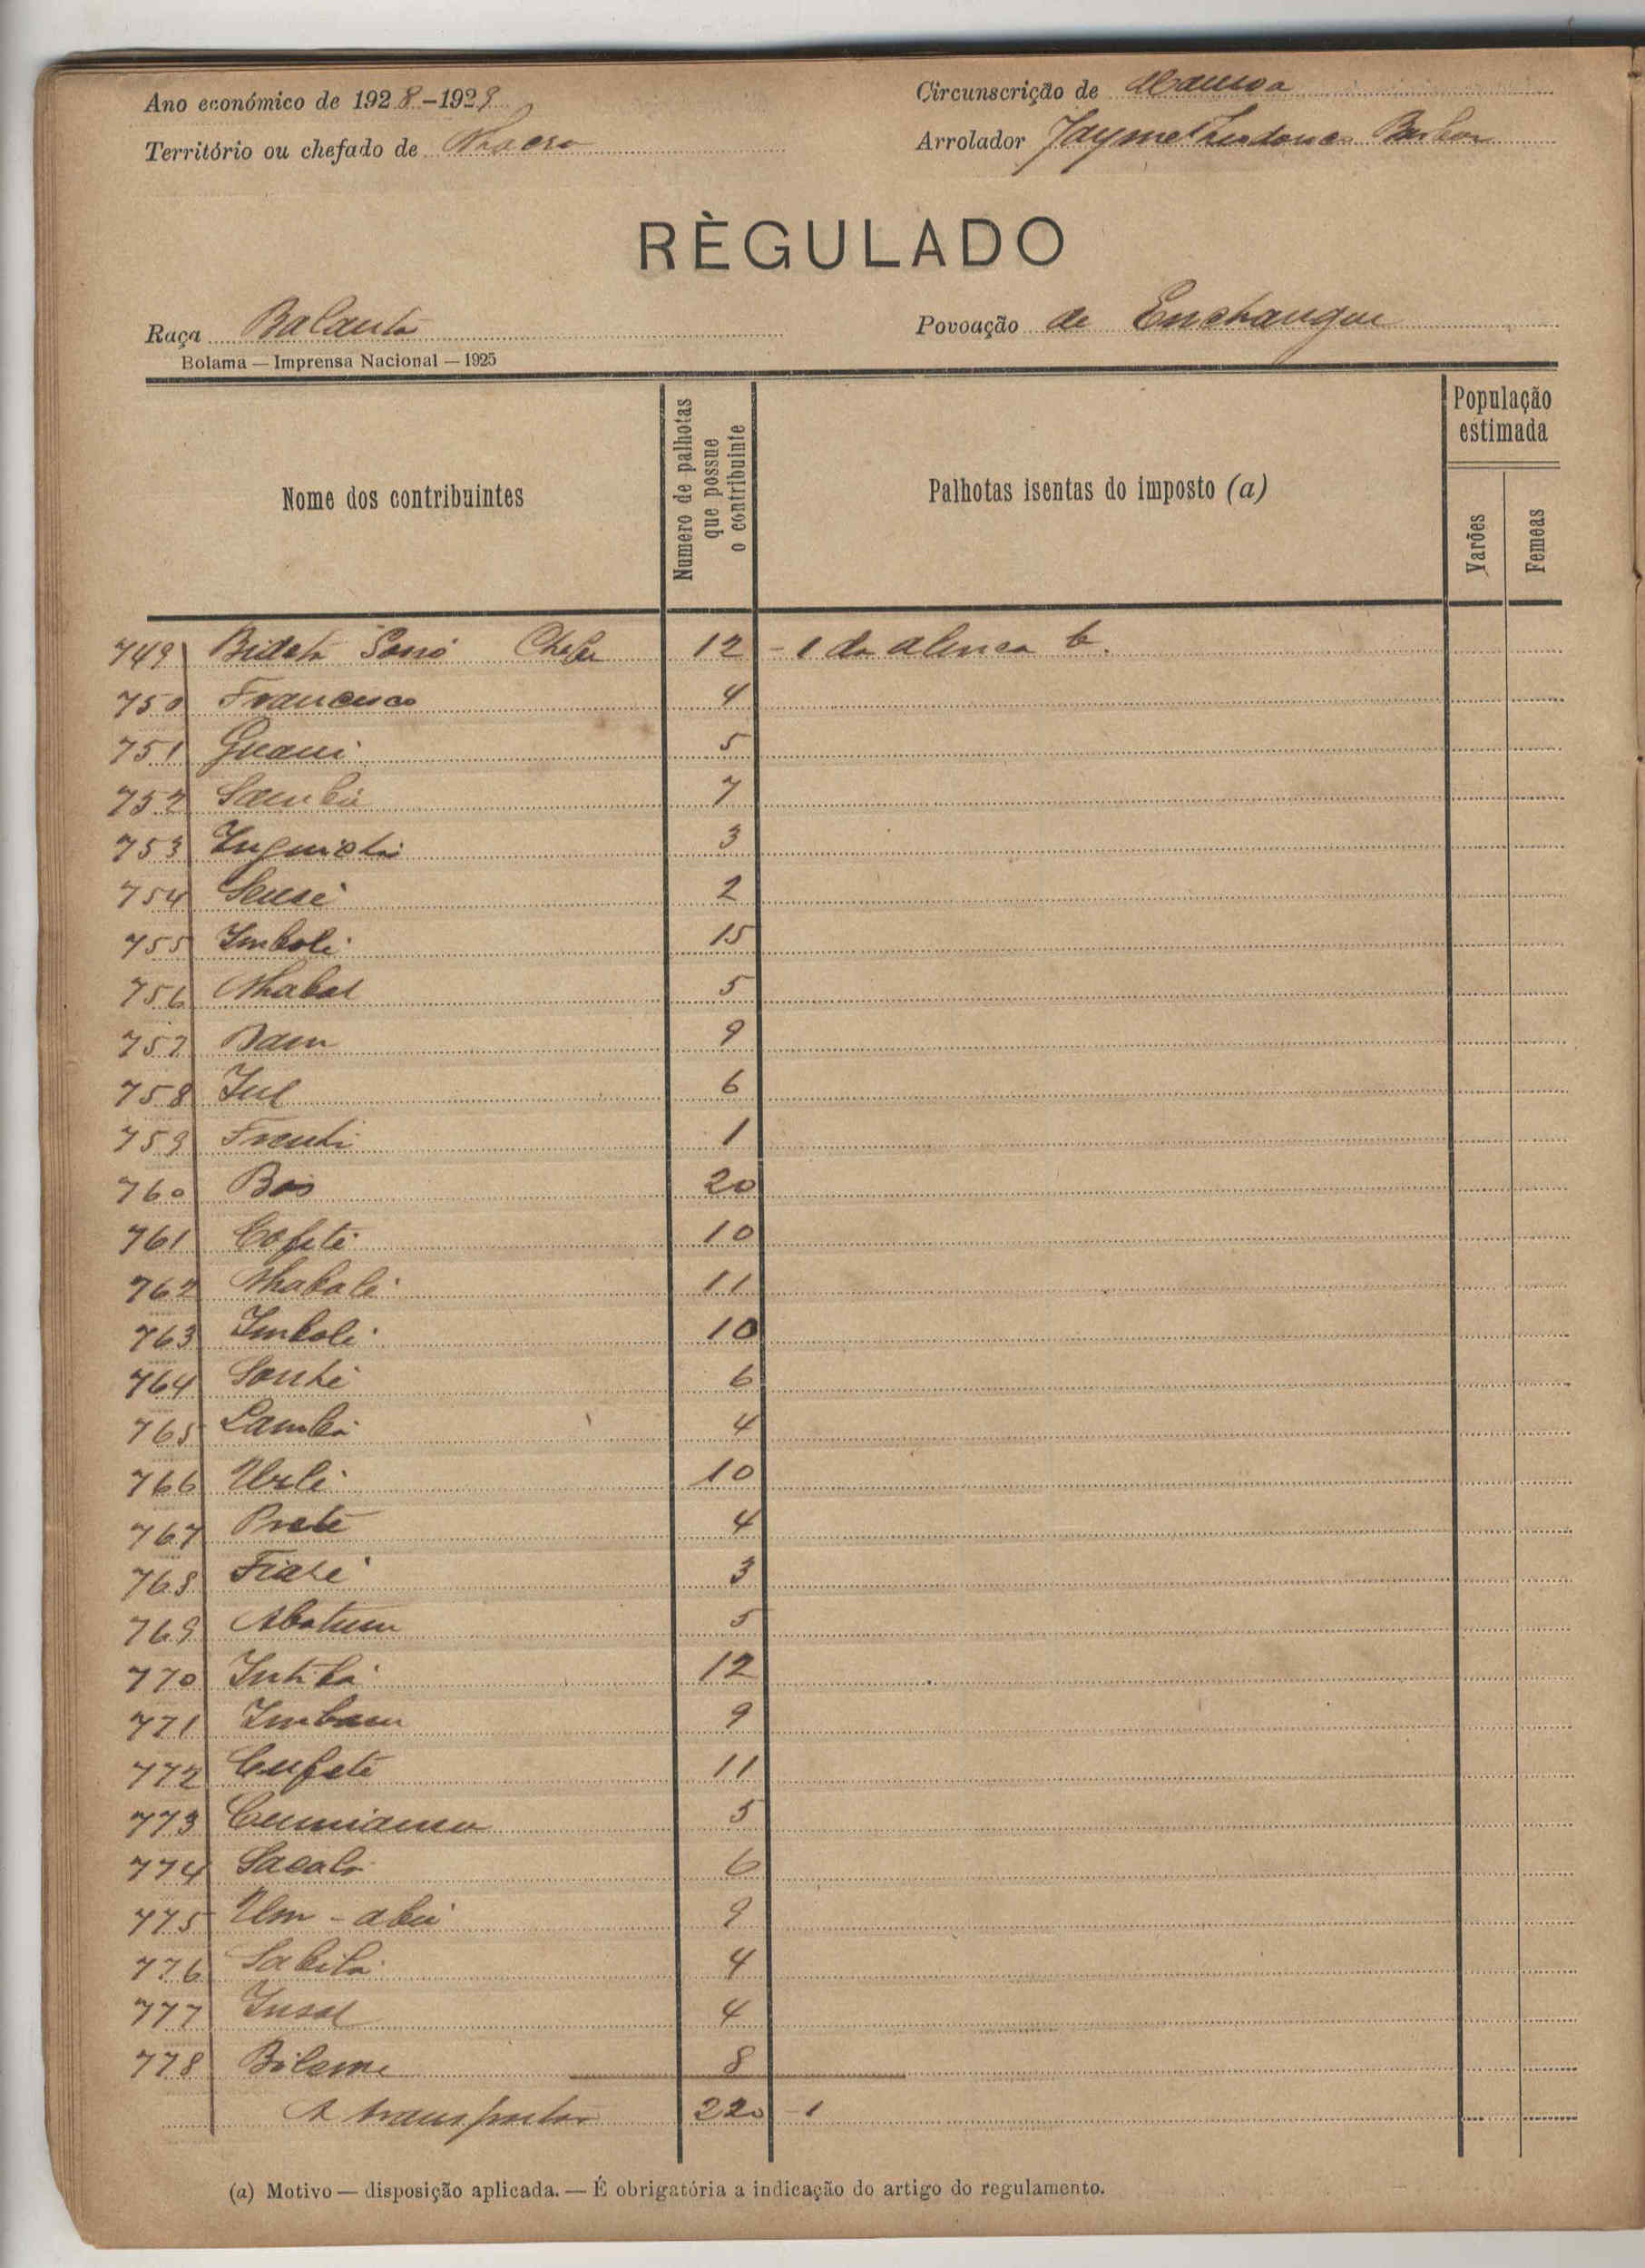 Ano económico de 1928-1929
Circunscrição de Mansoa
Território ou chefado de Nhacra
Arrolador Jayme
RÈGULADO
Raça Balanta
Povoação de Enchangue
Bolama — Imprensa Nacional — 1925
Nome dos contribuintes
Numero de palhotas que possue o contribuinte
Palhotas isentas do imposto (a)
População estimada
Varões
Femeas
749 Bidetá Sonó Chefe 12 - 1 da alinea b.
750 Francisco 4
751 Guami 5
752 Sambú 7
753 3
754 Seusé 2
755 Imboli 15
756 Nhabal 5
757 Bam 9
758 Jul 6
759 1
760 Bós 20
761 Cofeté 10
762 Nhabali 11
763 Imboli 10
764 Sonhé 6
765 Lambá 4
766 Urli 10
767 Preté 4
768 Fiaré 3
769 Abatum 5
770 Intibá 12
771 Imbam 9
772 Cufeté 11
773 5
774 Sacalo 6
775 Um-abú 9
776 Sabitá 4
777 Insol 4
778 Bilame 8
A transportar 220 - 1
(a) Motivo — disposição aplicada. — É obrigatória a indicação do artigo do regulamento.